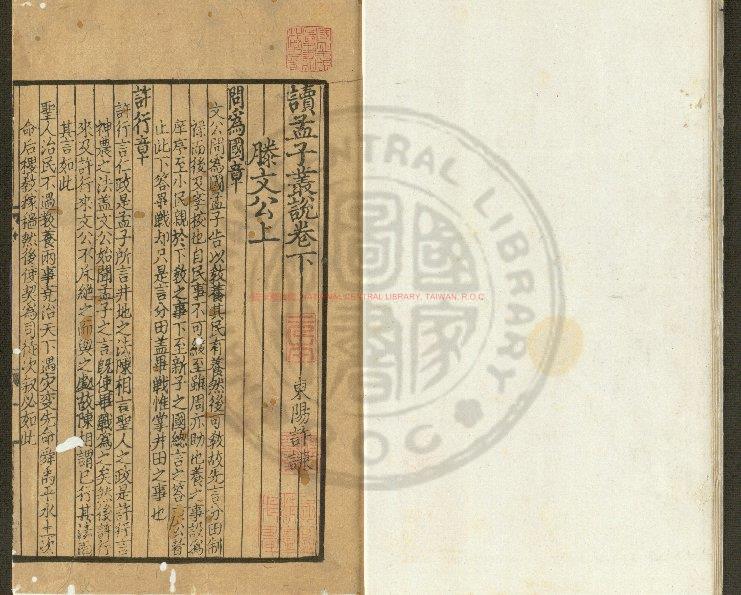 讀孟子叢說卷下
東陽許謙
滕文公上
問爲國章
文公問爲國孟子告以教養其民有養然後可教故先言分田制
祿而後及學校也自民事不可緩至雖周亦助也養之事設爲
庠序至小民親於下教之事下至新子之國總言之答文公者
止此下答畢戰却只是言分田蓋畢戰惟掌井田之事也
許行章
許行言仁政是孟子所言井地之法陳相言聖人之政是許行言
神農之法蓋文公始聞孟子之言既使畢戰爲之矣然後許行
來及許行來文公不斥絕之而與之處故陳相謂已行其法
其言如此
聖人治民不過教養兩事堯治天下遇災
命后稷教稼穡然後使契爲司徒次叙必如此
NATIONAL CENTRAL LIBRARY, TAIWAN, R.O.C
CENTRAL LIBRARY
ROC
國家圖書